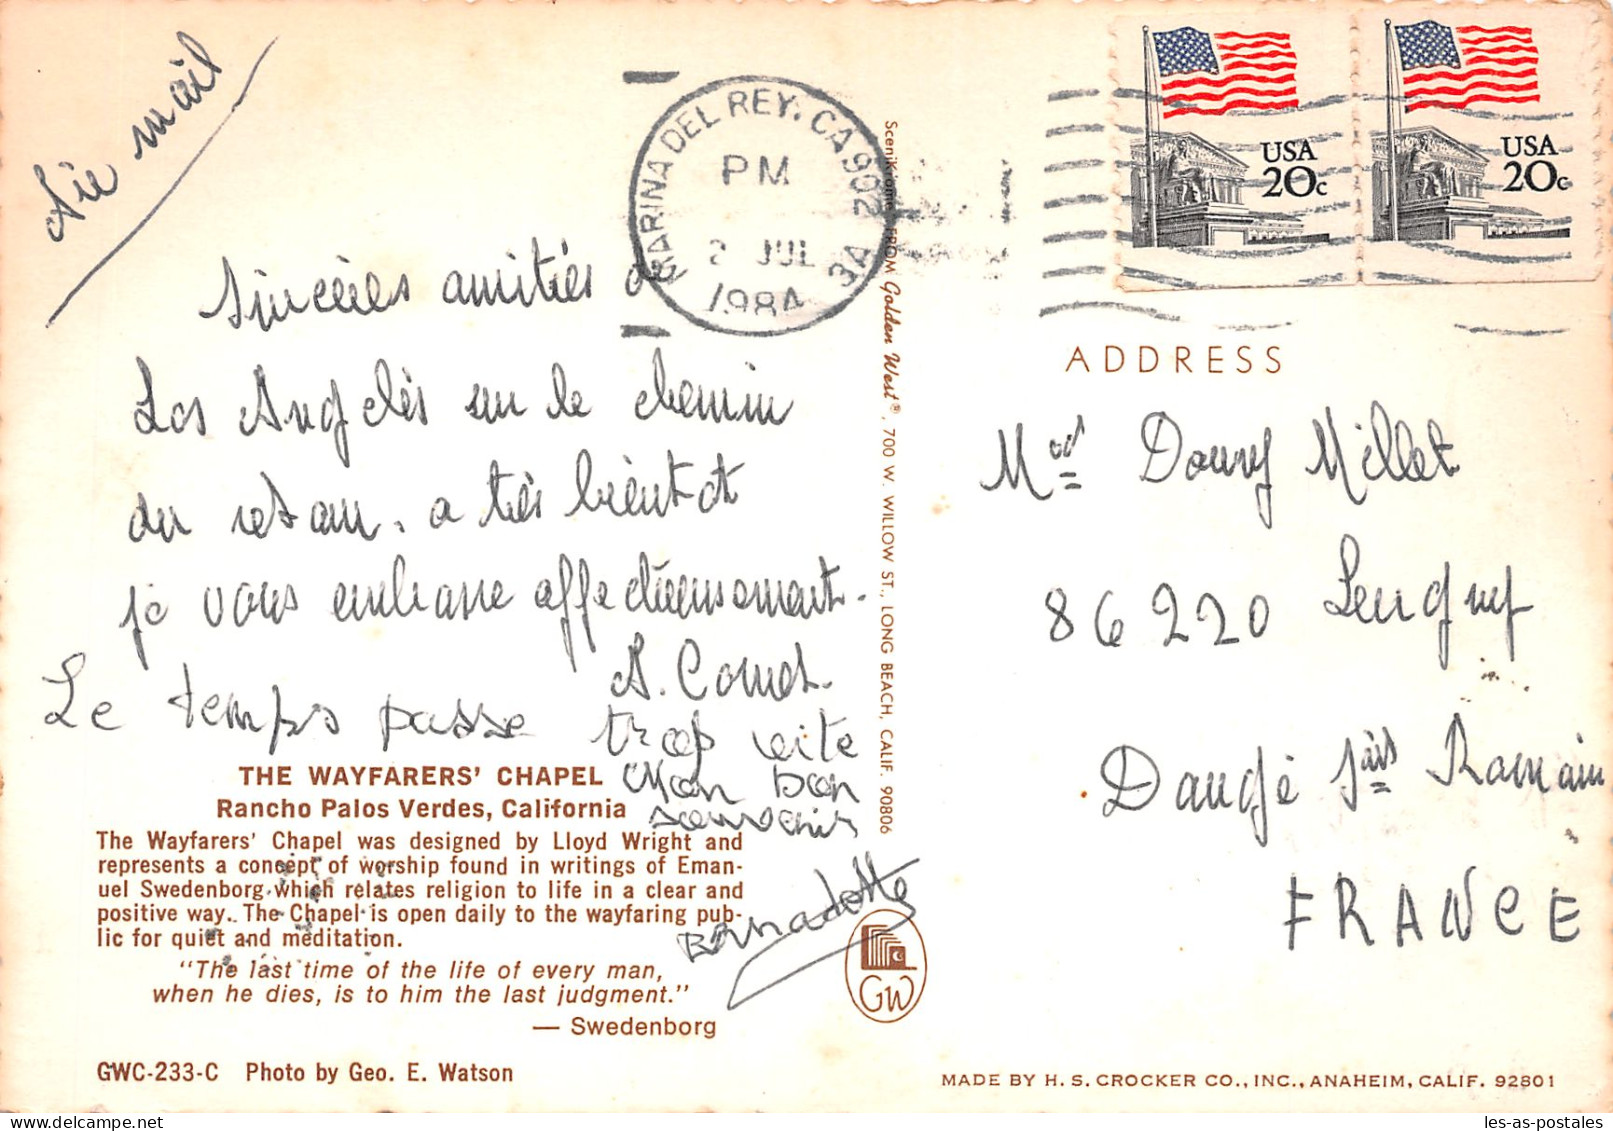 Air mail
MARINA DEL REY, CA 902
PM
2 JUL
1984
3A
USA
20c
USA
20c
Sincères amitiés de
Los Angelès sur le chemin
du retour. a très bientot
je vous embrasse affectueusement.
A. Comet.
Le temps passe trop vite
Mon bon
souvenir
Bernadette
THE WAYFARERS' CHAPEL
Rancho Palos Verdes, California
The Wayfarers' Chapel was designed by Lloyd Wright and
represents a concept of worship found in writings of Eman-
uel Swedenborg which relates religion to life in a clear and
positive way. The Chapel is open daily to the wayfaring pub-
lic for quiet and meditation.
"The last time of the life of every man,
when he dies, is to him the last judgment."
— Swedenborg
GWC-233-C Photo by Geo. E. Watson
FROM Golden West®, 700 W. WILLOW ST., LONG BEACH, CALIF. 90806
GW
ADDRESS
Millet
86220
Dangé St Romain
FRANCE
MADE BY H. S. CROCKER CO., INC., ANAHEIM, CALIF. 92801
les-as-postales